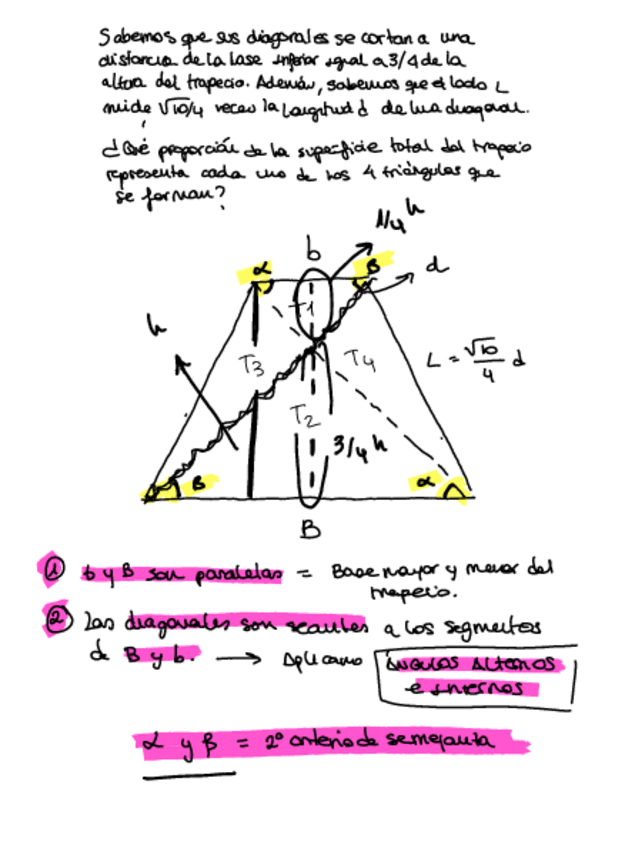 Sabemos que sus diagonales se cortan a una
distancia de la base inferior igual a 3/4 de la
altura del trapecio. Además, sabemos que el lado L
mide √10/4 veces la longitud d de una diagonal.
¿Qué proporción de la superficie total del trapecio
representa cada uno de los 4 triángulos que
se forman?
1/4 h
b
α
B
d
h
T1
T3
T4
L = √10/4 d
T2
3/4 h
B
α
B
① b y B son paralelas = Base mayor y menor del
trapecio.
② Las diagonales son secantes a los segmentos
de B y b. → Aplicamo ángulos alternos
e internos
α y β = 2º criterio de semejanza